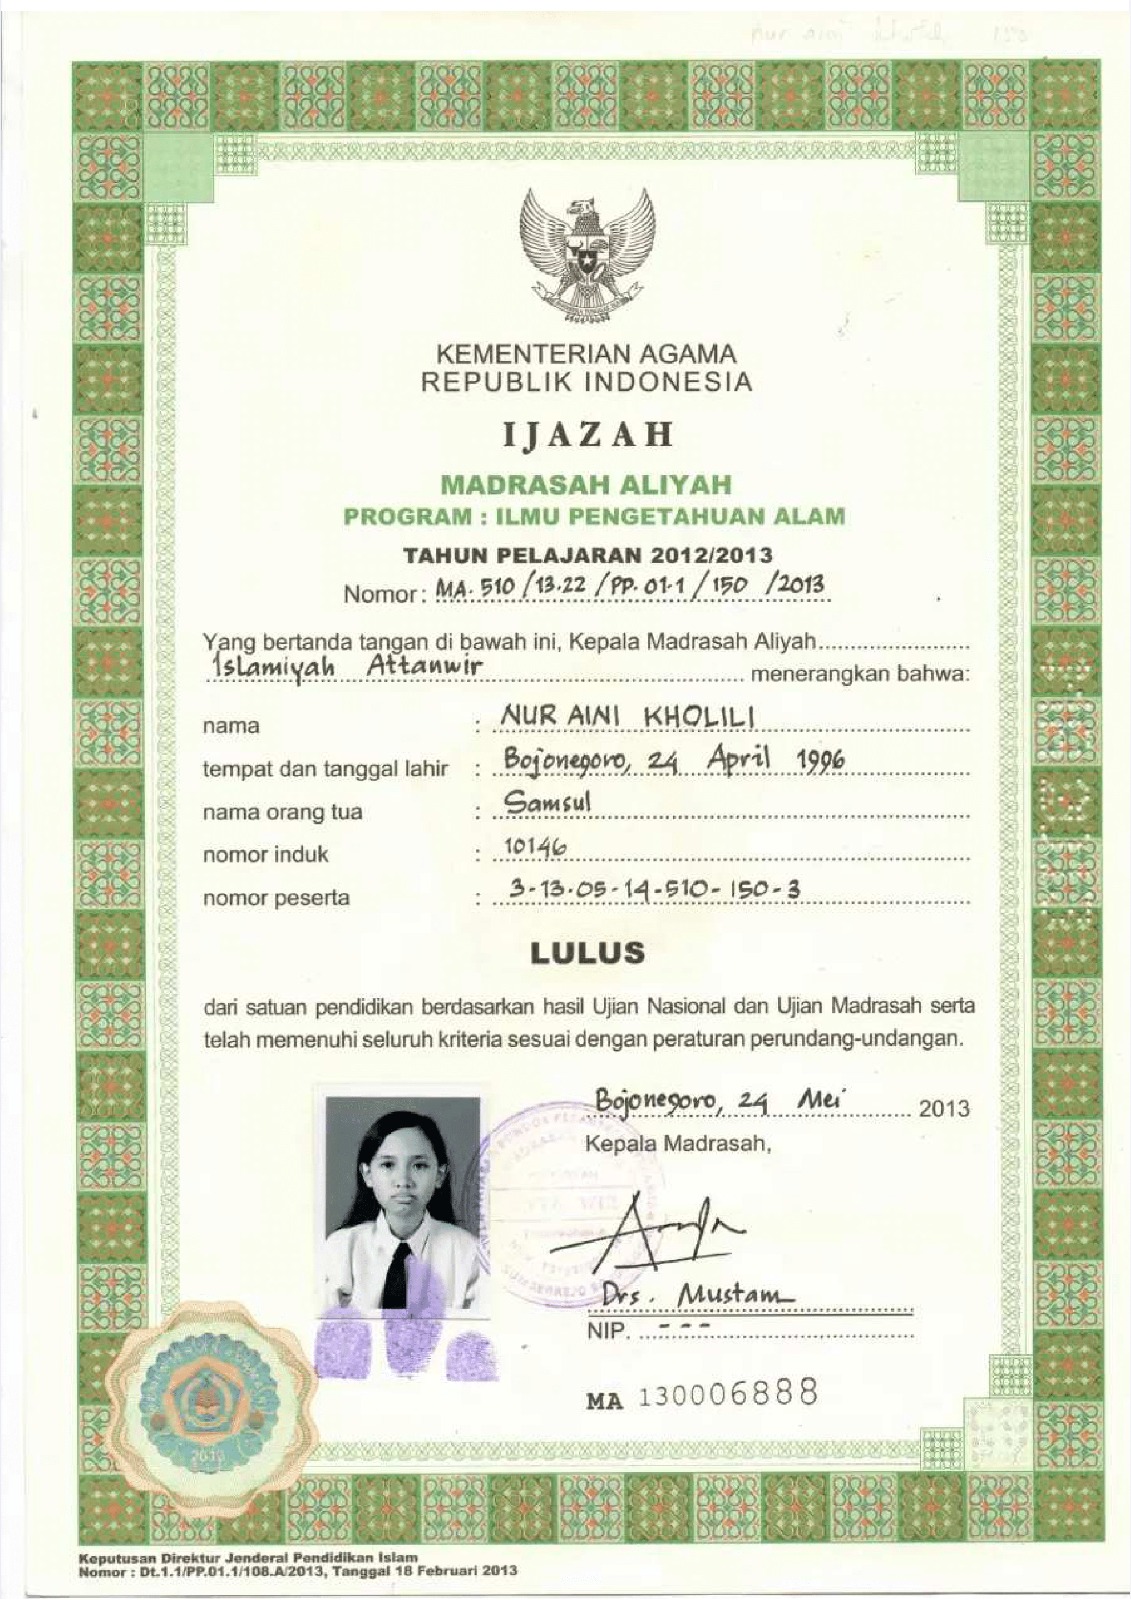 Nur aini
KEMENTERIAN AGAMA
REPUBLIK INDONESIA
IJAZAH
MADRASAH ALIYAH
PROGRAM : ILMU PENGETAHUAN ALAM
TAHUN PELAJARAN 2012/2013
Nomor : MA. 510 / 13.22 / PP. 01.1 / 150 / 2013
Yang bertanda tangan di bawah ini, Kepala Madrasah Aliyah
Islamiyah Attanwir menerangkan bahwa:
nama : NUR AINI KHOLILI
tempat dan tanggal lahir : Bojonegoro, 24 April 1996
nama orang tua : Samsul
nomor induk : 10146
nomor peserta : 3-13-05-14-510-150-3
LULUS
dari satuan pendidikan berdasarkan hasil Ujian Nasional dan Ujian Madrasah serta
telah memenuhi seluruh kriteria sesuai dengan peraturan perundang-undangan.
Bojonegoro, 24 Mei 2013
Kepala Madrasah,
Drs. Mustam
NIP. - - -
MA 130006888
2013
Keputusan Direktur Jenderal Pendidikan Islam
Nomor : Dt.1.1/PP.01.1/108.A/2013, Tanggal 18 Februari 2013